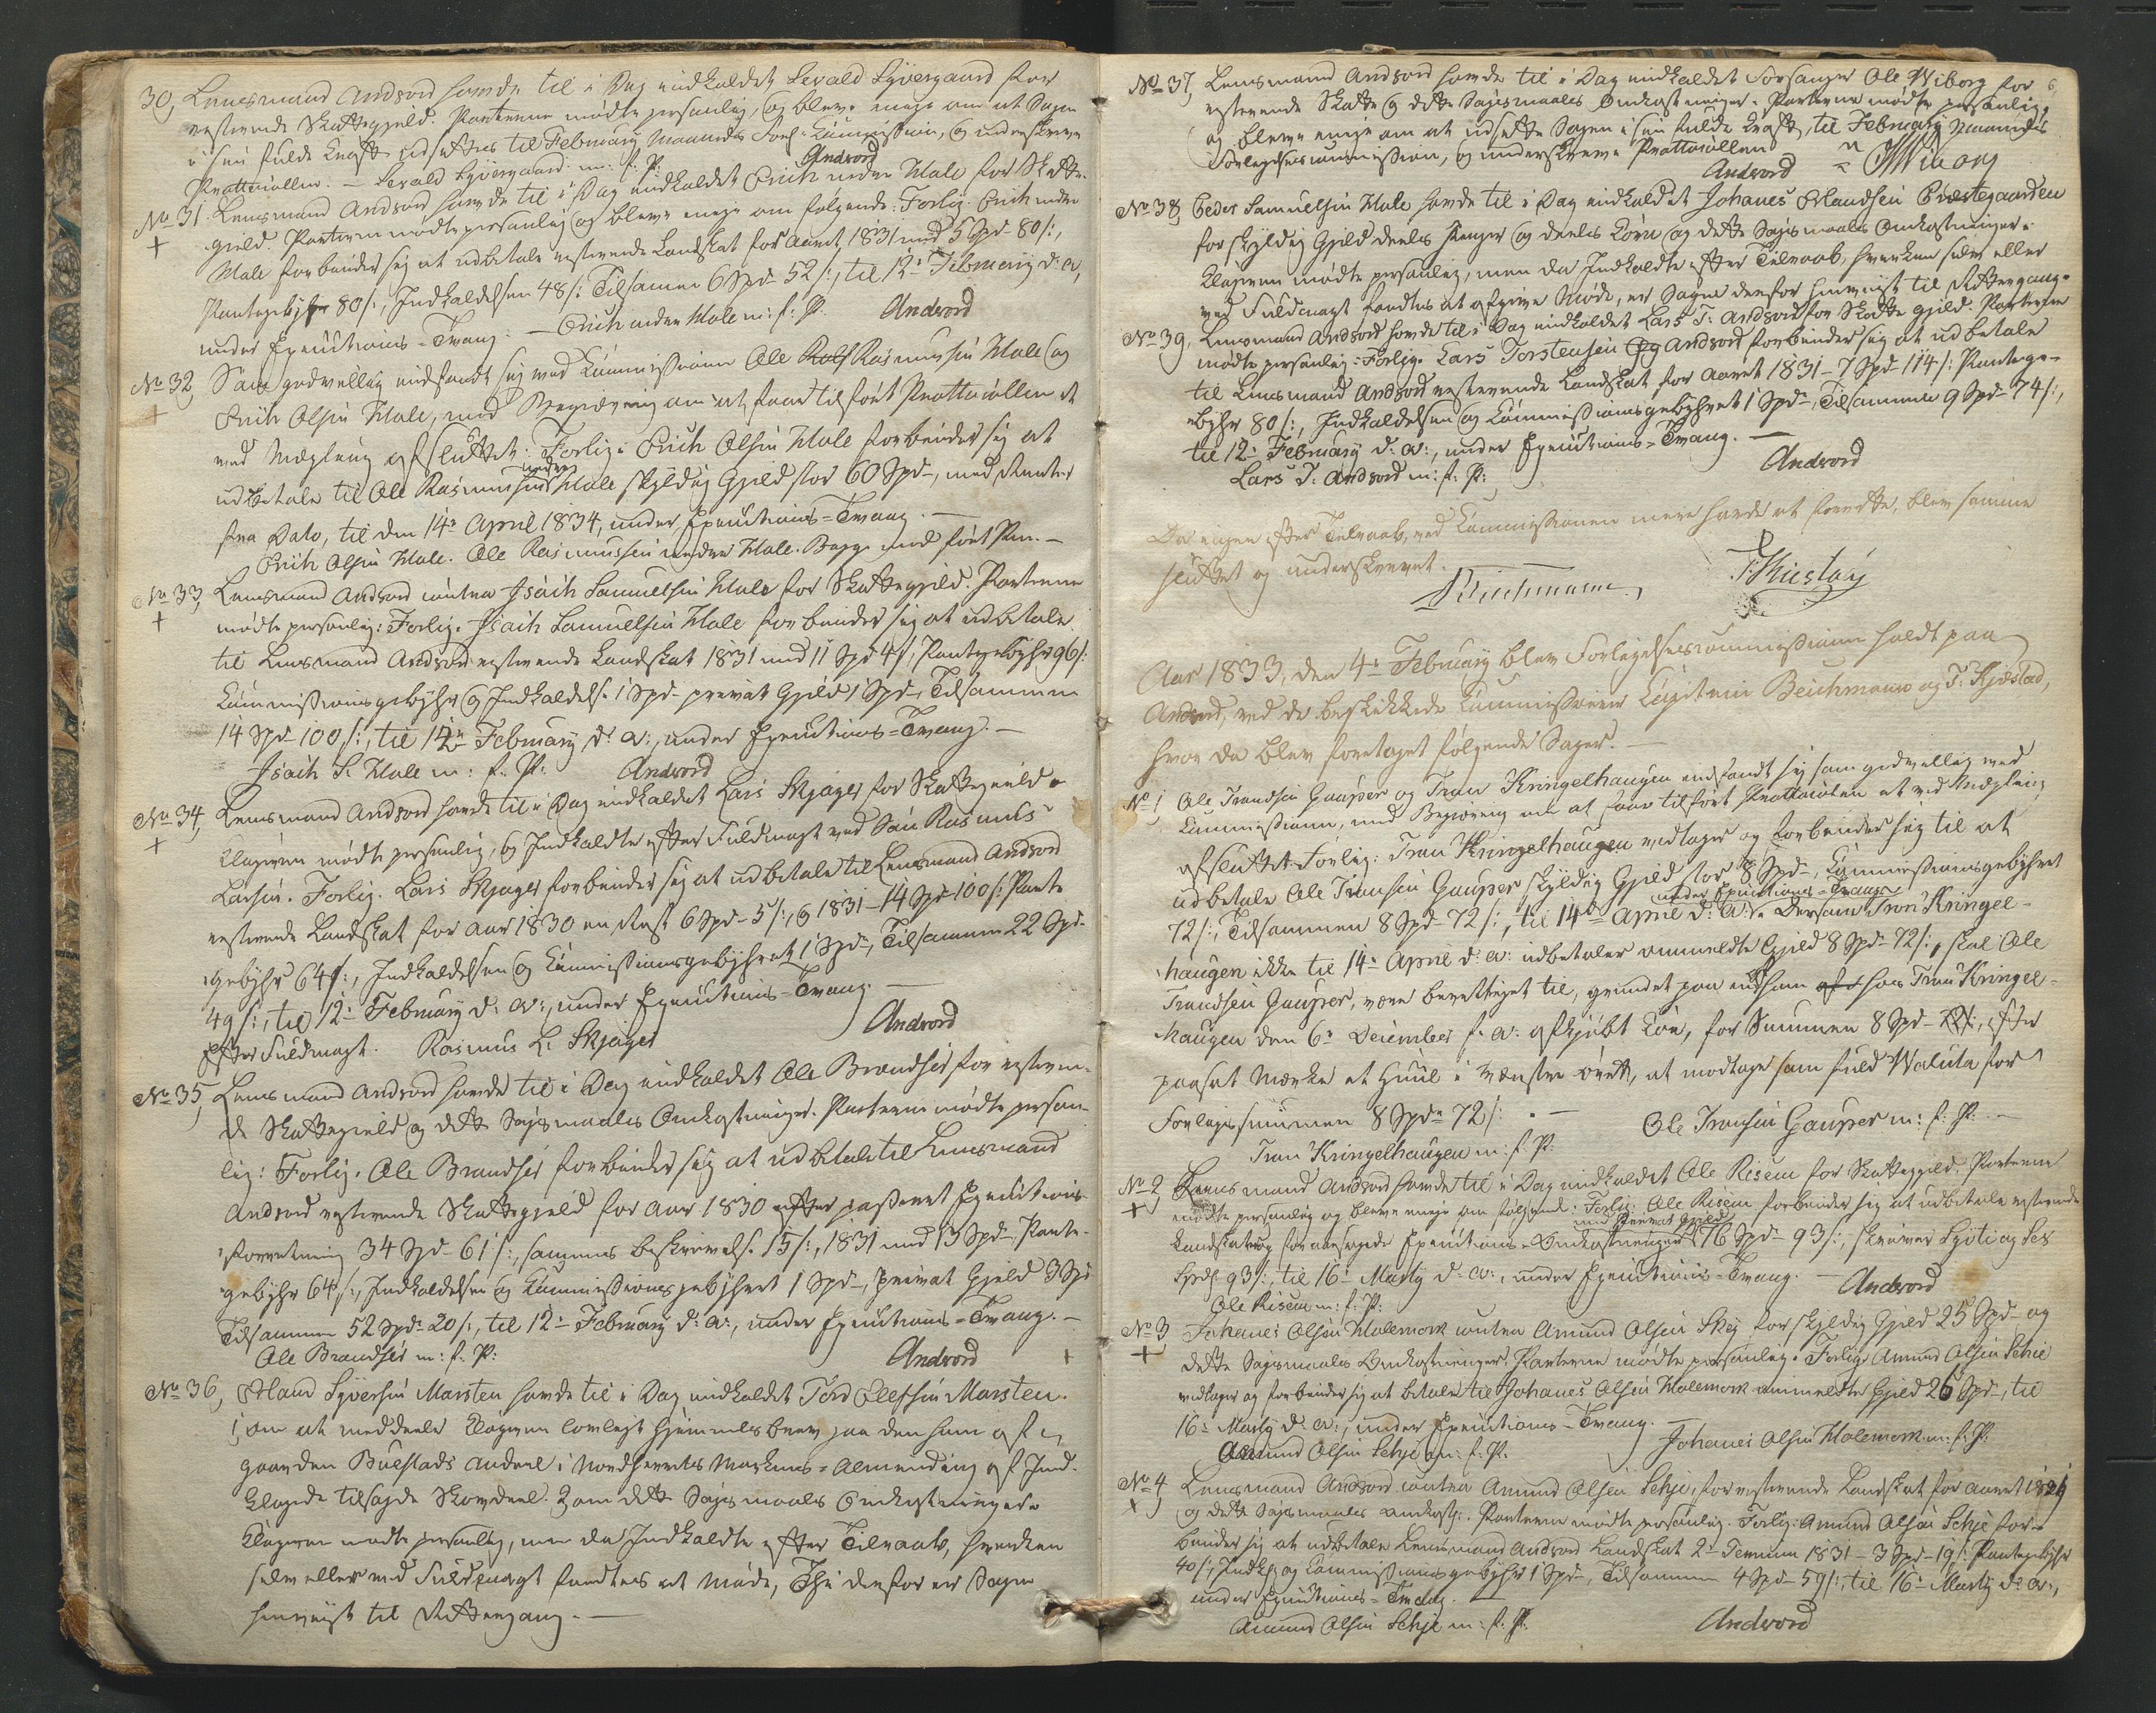 30, Lensmand Andvord havde til i Dag indkaldet Sevald Syversgaard for
resterende Skattegjeld. Parterne mødte personlig, og bleve enige om at Sagen
i sin fulde Kraft udsættes til Februarÿ Maaneds Forl: Commission, og underskreve
Prottocollen. — Sevald Syversgaard m: f: P: Andvord
No 31. Lensmand Andvord havde til i Dag indkaldet Erich nedre Hole for Skatte-
gield. Parterne mødte personlig og bleve enige om følgende: Forlig. Erich nedre
Hole forbinder sig at udbetale resterende Landskat for Aaret 1831 med 5 Spd 80 /:,
Pantegebyhr 80 /:, Indkaldelsen 48 /: Tilsamen 6 Spd 52 /:, til 12te Februarÿ d: A:,
under Executions-Tvang. — Erich nedre Hole m: f: P. Andvord
No 32, Som godvillig indfandt sig ved Commissionen Ole Rolf Rasmussen Hole og
Erich Olsen Hole, med Begjæring om at faae tilført Prottocollen et
ved Mægling afsluttet: Forlig: Erich Olsen Hole forbinder sig at
udbetale til Ole Rasmussen nedre Hole skyldig Gjeld stor 60 Spd, med Renter
fra Dato, til den 14de April 1834, under Executions-Tvang. —
Erich Olsen Hole. Ole Rasmussen nedre Hole. Begge med ført Pen. —
No 33, Lensmand Andvord contra Isach Samuelsen Hole for Skattegjeld. Parterne
mødte personlig: Forlig. Isach Samuelsen Hole forbinder sig at udbetale
til Lensmand Andvord resterende Landskat 1831 med 11 Spd 4 /:, Pantegebyhr 96 /:
Commissionsgebyhr og Indkaldelse 1 Spd privat Gjeld 1 Spd, Tilsammen
14 Spd 100 /:, til 12te Februarÿ d: A:, under Executions-Tvang. —
Isach S. Hole m: f: P: Andvord
No 34, Lensmand Andvord havde til i Dag indkaldet Lars Skjager for Skattegield.
Klageren mødte personlig, og Indkaldte efter Fuldmagt ved Søn Rasmus
Larsen. Forlig. Lars Skjager forbinder sig at udbetale til Lensmand Andvord
resterende Landskat for Aar 1830 en Rest 6 Spd 5 /:, og 1831 – 14 Spd 100 /: Pante-
gebyhr 64 /:, Indkaldelsen og Commissionsgebyhret 1 Spd, Tilsammen 22 Spd
49 /:, til 12te Februarÿ d: A:, under Executions-Tvang. —
Efter Fuldmagt. Rasmus L: Skjager Andvord
No 35, Lensmand Andvord havde til i Dag indkaldet Ole Brandsæ for resteren-
de Skattegield og dette Søgsmaales Omkostninger. Parterne mødte person-
lig: Forlig. Ole Brandsæ forbinder sig at udbetale til Lensmand
Andvord resterende Skattegjeld for Aar 1830 efter passeret Executions-
forretning 34 Spd 61 /:, sammes beskrivelse 15 /:, 1831 med 13 Spd, Pante-
gebyhr 64 /:, Indkaldelsen og Commissionsgebyhret 1 Spd, privat Gjeld 3 Spd
Tilsammen 52 Spd 20 /:, til 12te Februarÿ d: A:, under Executions-Tvang. —
Ole Brandsæ m: f: P: Andvord
No 36, Haand Syversen Marsten havde til i Dag indkaldet Tord Olefsen Marsten.
om at meddeele Klageren lovligt Hjemmelsbrev paa den ham af
gaarden Buestads Andeel i Nordherrets Marken-Almending af Ind-
klagede tilsagde Skovdeel. Z om dette Søgsmaals Omkostninger.
Klageren mødte personlig, men da Indkaldte efter Tilraab, hverken
selv eller ved Fuldmagt fandtes at møde, Thi derfor er Sagen
henviist til Rettergang. —
No 37, Lensmand Andvord havde til i Dag indkaldet Forsanger Ole Wiborg for
resterende Skatte og dette Søgsmaales Omkostninger. Parterne mødte personlig,
og bleve enige om at udsætte Sagen i sin fulde Kraft, til Februarÿ Maaneds
Forligelsescommission, og underskreve Prottocollen
Andvord Wiborg
No 38, Peder Samuelsen Hole havde til i Dag indkaldet Johanes Erlandsen Præstegaarden
for skyldig Gjeld deels Penger og deels Korn og dette Søgsmaales Omkostninger.
Klageren mødte personlig, men da Indkaldte efter Tilraab, hverken selv eller
ved Fuldmagt fandtes at afgive Møde, er Sagen derfor henviist til Rettergang.
No 39, Lensmand Andvord havde til i Dag indkaldet Lars T: Andvord for Skatte gjeld. Parterne
mødte personlig: Forlig. Lars Torstensen Andvord forbinder sig at udbetale
til Lensmand Andvord resterende Landskat for Aaret 1831 – 7 Spd 114 /: Pantege-
byhr 80 /:, Indkaldelsen og Commissionsgebyhret 1 Spd, Tilsammen 9 Spd 74 /:,
til 12te Februarÿ d: A:, under Executions-Tvang. —
Lars T: Andvord m: f: P: Andvord
Da ingen efter Tilraab, ved Commissionen mere havde at foredte, blev samme
sluttet og underskrevet.
Beichmann, T. Kiestad
Aar 1833, den 4de Februarÿ blev Forligelsescommissionen holdt paa
Andvord, ved de beskikkede Commissairer Capitain Beichmann og T: Kjæstad,
hvor da blev foretaget følgende Sager. —
No 1, Ole Trondsen Gauper og Tron Kringelhaugen indfandt sig som godvillig ved
Commissionen, med Begjæring om at faae tilført Prottocolen et ved Mægling
afsluttet Forlig: Tron Kringelhaugen vedtager og forbinder sig til at
udbetale Ole Tronsen Gauper skyldig Gjeld stor 8 Spd, Commissionsgebyhret
72 /:, Tilsammen 8 Spd 72 /:, til 14de April d: A: under Executions-Tvang. Dersom Tron Kringel-
haugen ikke til 14de April d: A: udbetaler ommeldte Gjeld 8 Spd 72 /:, skal Ole
Trondsen Gauper, være berettiget til, grundet paa en ham af hos Tron Kringel-
haugen den 6te December f. A: afkjøbt Koe, for Summen 8 Spd 72 /:, efter
paasat Mærke et Huul i venstre øret, at modtage som fuld Waluta for
Forligssummen 8 Spd 72 /: . —
Tron Kringelhaugen m: f: P: Ole Tronsen Gauper m: f: P: —
No 2 Lensmand Andvord havde til i Dag indkaldet Ole Risem for Skattegjeld. Parterne
mødte personlig og bleve enige om følgende: Forlig: Ole Risem forbinder sig at udbetale resterende
Landskat og foraarsagede Executions-Omkostninger med privat Gjeld 76 Spd 93 /:, skriver Syti og Sex
Spd 93 /:, til 16de Martÿ d: A:, under Executions-Tvang. — Andvord
Ole Risem m: f: P:
No 3 Johanes Olsen Holemork contra Amund Olsen Skej for skyldig Gjeld 25 Spd og
dette Søgsmaales Omkostninger. Parterne mødte personlig. Forlig: Amund Olsen Schie
vedtager og forbinder sig at betale til Johanes Olsen Holemork ommeldte Gjeld 26 Spd, til
16de Martÿ d: A:, under Executions-Tvang. —
Amund Olsen Schje m: f: P: Johanes Olsen Holemork m: f: P:
No 4 Lensmand Andvord contra Amund Olsen Schje, for resterende Landskat for Aaret 1831
og dette Søgsmaales omkostg:. Parterne mødte personlig. Forlig: Amund Olsen Schje for-
binder sig at udbetale Lensmand Andvord Landskat 2de Termin 1831 – 3 Spd 19 /: Pantegebyhr
40 /:, Indk: og Commissionsgebyhr 1 Spd, Tilsammen 4 Spd 59 /:, til 16de Martÿ d: A:,
under Executions-Tvang. —
Amund Olsen Schje m: f: P. Andvord